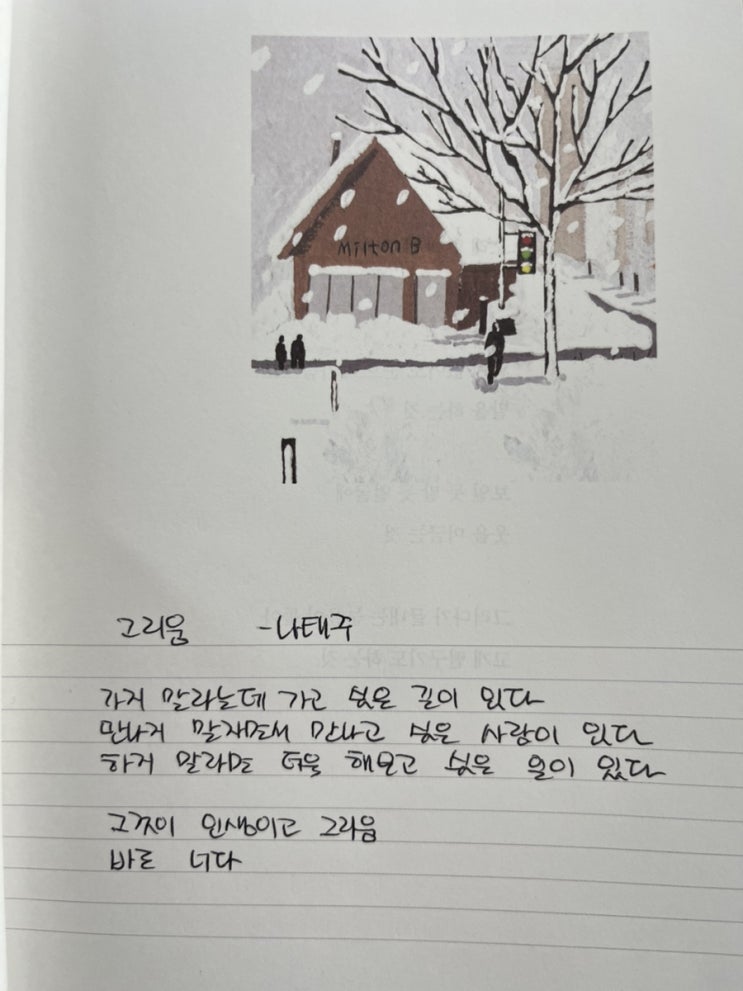 Milton B
그리움 -나태주
가지 말라는데 가고 싶은 길이 있다
만나지 말자면서 만나고 싶은 사람이 있다
하지 말라면 더욱 해보고 싶은 일이 있다
그것이 인생이고 그리움
바로 너다